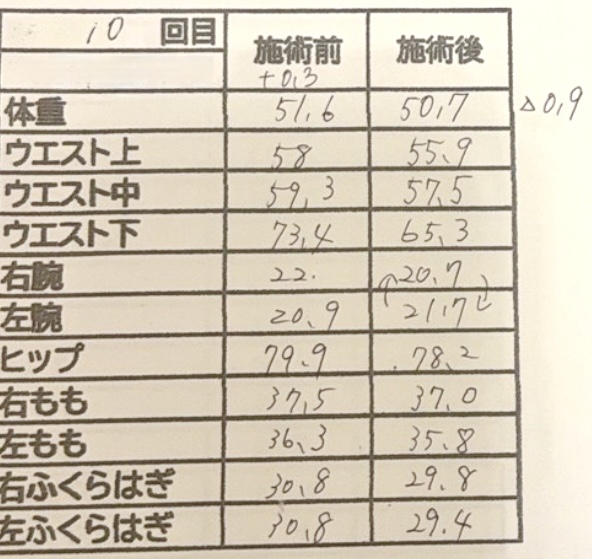 10 回目 施術前 施術後
+0.3
体重 51.6 50.7 △0.9
ウエスト上 58 55.9
ウエスト中 59.3 57.5
ウエスト下 73.4 65.3
右腕 22. 20.7
左腕 20.9 21.7
ヒップ 79.9 78.2
右もも 37.5 37.0
左もも 36.3 35.8
右ふくらはぎ 30.8 29.8
左ふくらはぎ 30.8 29.4